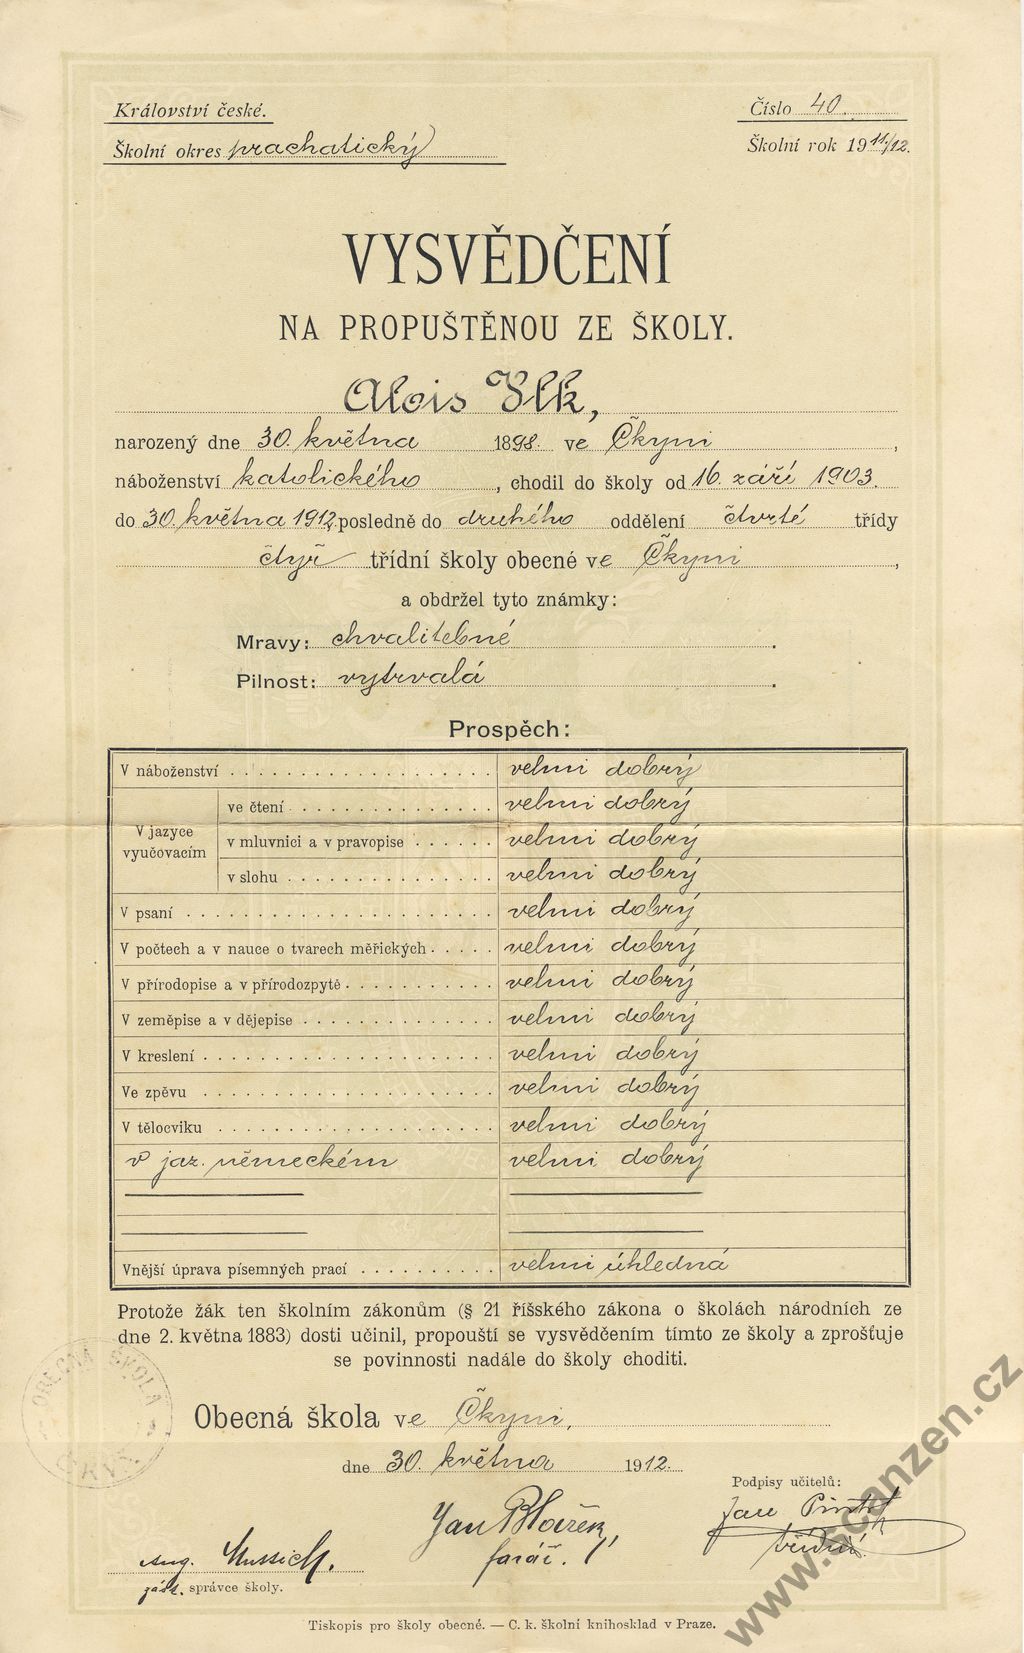 Království české.
Číslo 40.
Školní okres prachatický
Školní rok 1911/12.
VYSVĚDČENÍ
NA PROPUŠTĚNOU ZE ŠKOLY.
Alois Vlk,
narozený dne 30. května 1898. ve Čkyni,
náboženství katolického, chodil do školy od 16. září 1903.
do 30. května 1912. posledně do druhého oddělení čtvrté třídy
čtyř třídní školy obecné ve Čkyni,
a obdržel tyto známky:
Mravy: chvalitebné.
Pilnost: vytrvalá.
Prospěch:
V náboženství velmi dobrý
V jazyce vyučovacím
ve čtení velmi dobrý
v mluvnici a v pravopise velmi dobrý
v slohu velmi dobrý
V psaní velmi dobrý
V počtech a v nauce o tvarech měřických velmi dobrý
V přírodopise a v přírodozpytě velmi dobrý
V zeměpise a v dějepise velmi dobrý
V kreslení velmi dobrý
Ve zpěvu velmi dobrý
V tělocviku velmi dobrý
v jaz. německém velmi dobrý
Vnější úprava písemných prací velmi úhledná
Protože žák ten školním zákonům (§ 21 říšského zákona o školách národních ze
dne 2. května 1883) dosti učinil, propouští se vysvědčením tímto ze školy a zprošťuje
se povinnosti nadále do školy choditi.
OBECNÁ ŠKOLA
Obecná škola ve Čkyni,
dne 30. května 1912.
Podpisy učitelů:
Jan
třídní.
Jan Blažek,
farář.
Aug.
zást. správce školy.
Tiskopis pro školy obecné. — C. k. školní knihosklad v Praze.
www.scanzen.cz